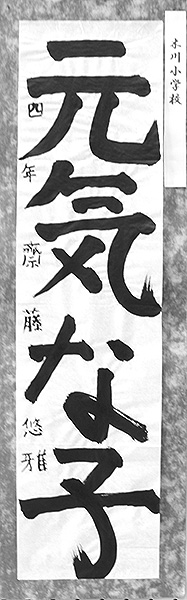 木川小学校
元気な子
四年 齋藤悠雅